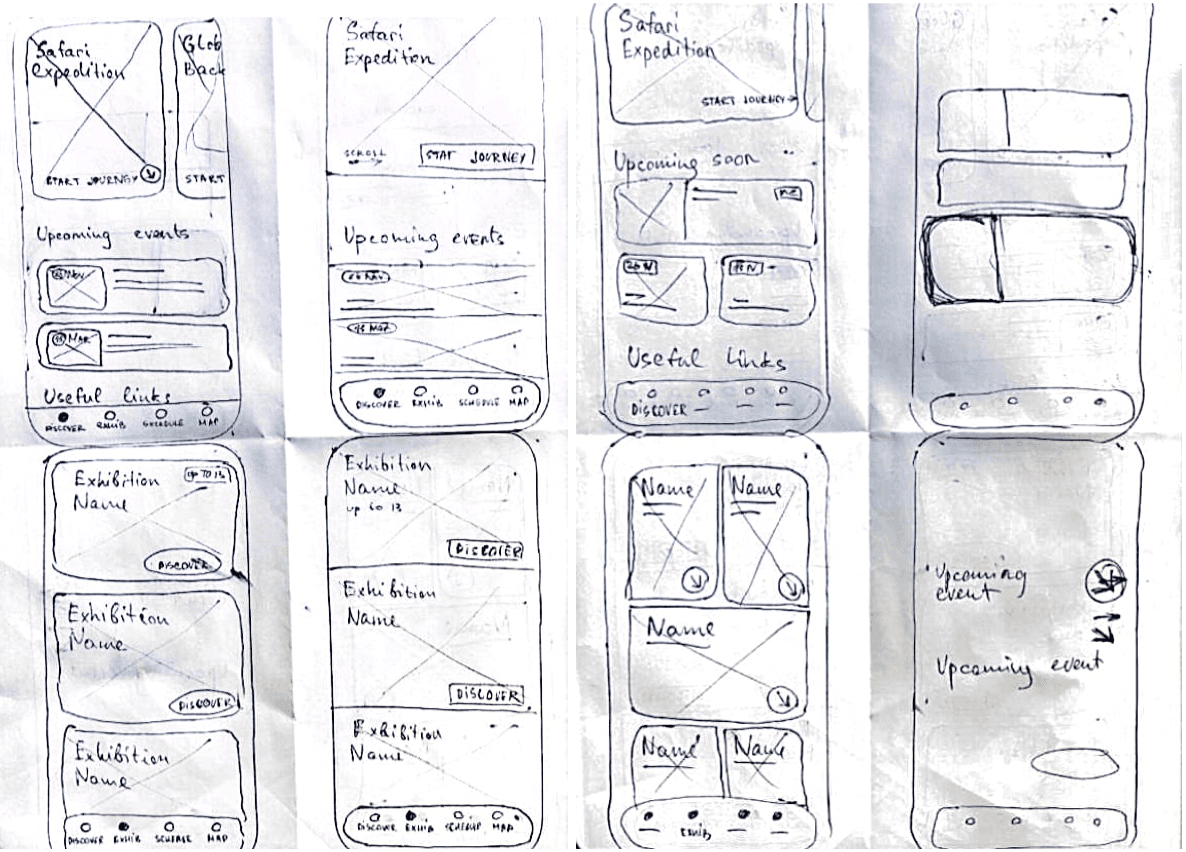 Safari
Expedition
START JOURNEY
Glob
Back
START
Upcoming events
Nov
MAR
Useful links
DISCOVER EXHIB SCHEDULE MAP
Safari
Expedition
SCROLL
STAT JOURNEY
Upcoming events
26 NOV
13 MAR
DISCOVER EXHIB SCHEDULE MAP
Safari
Expedition
START JOURNEY
Upcoming soon
26 N
Useful Links
DISCOVER
Exhibition
Name
UP TO 13
DISCOVER
Exhibition
Name
DISCOVER
Exhibition
Name
DISCOVER EXHIB SCHEDULE MAP
Exhibition
Name
up to 13
DISCOVER
Exhibition
Name
DISCOVER
Exhibition
Name
DISCOVER EXHIB MAP
Name
Name
Name
Name
Name
EXHIB
Upcoming
event
Upcoming event